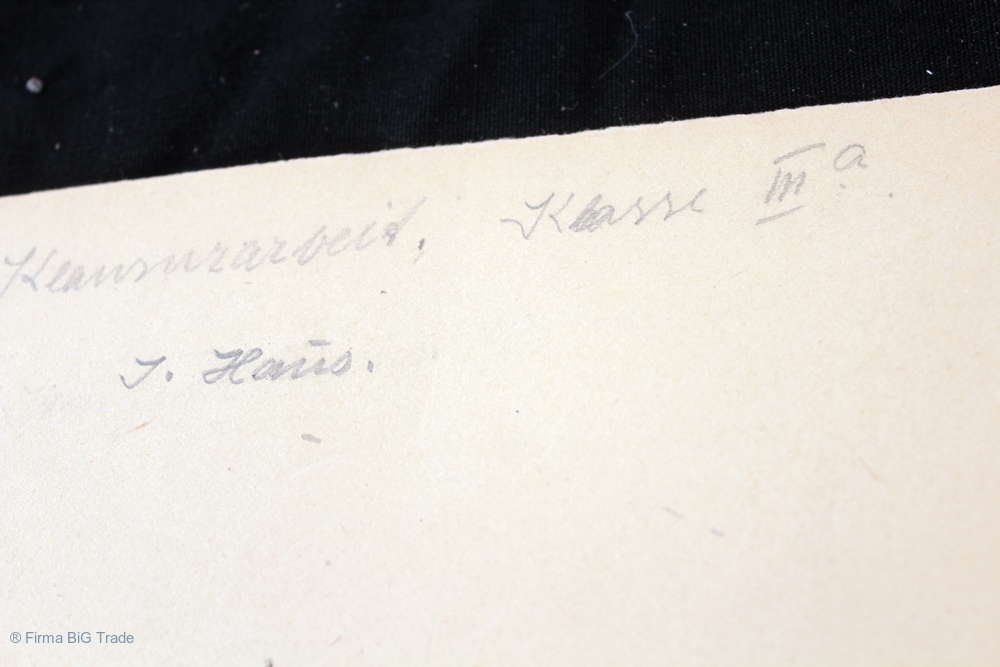 Klausurarbeit, Klasse III a.
J. Haus.
® Firma BiG Trade